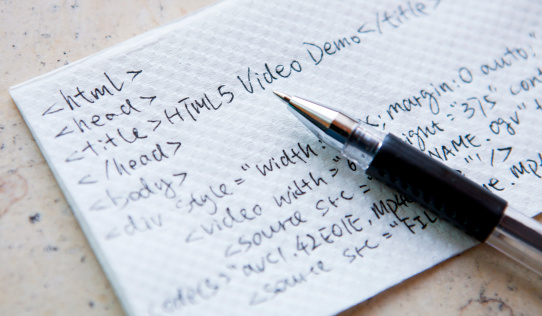 <html>
<head>
<title>HTML5 Video Demo</title>
</head>
<body>
<div style="width: ; margin:0 auto;"
<video width=" ight="375" cont
<source src = NAME.ogv" t
codecs="avc1.42E01E,MP4 "'/>
<source src ="FIL .mp4